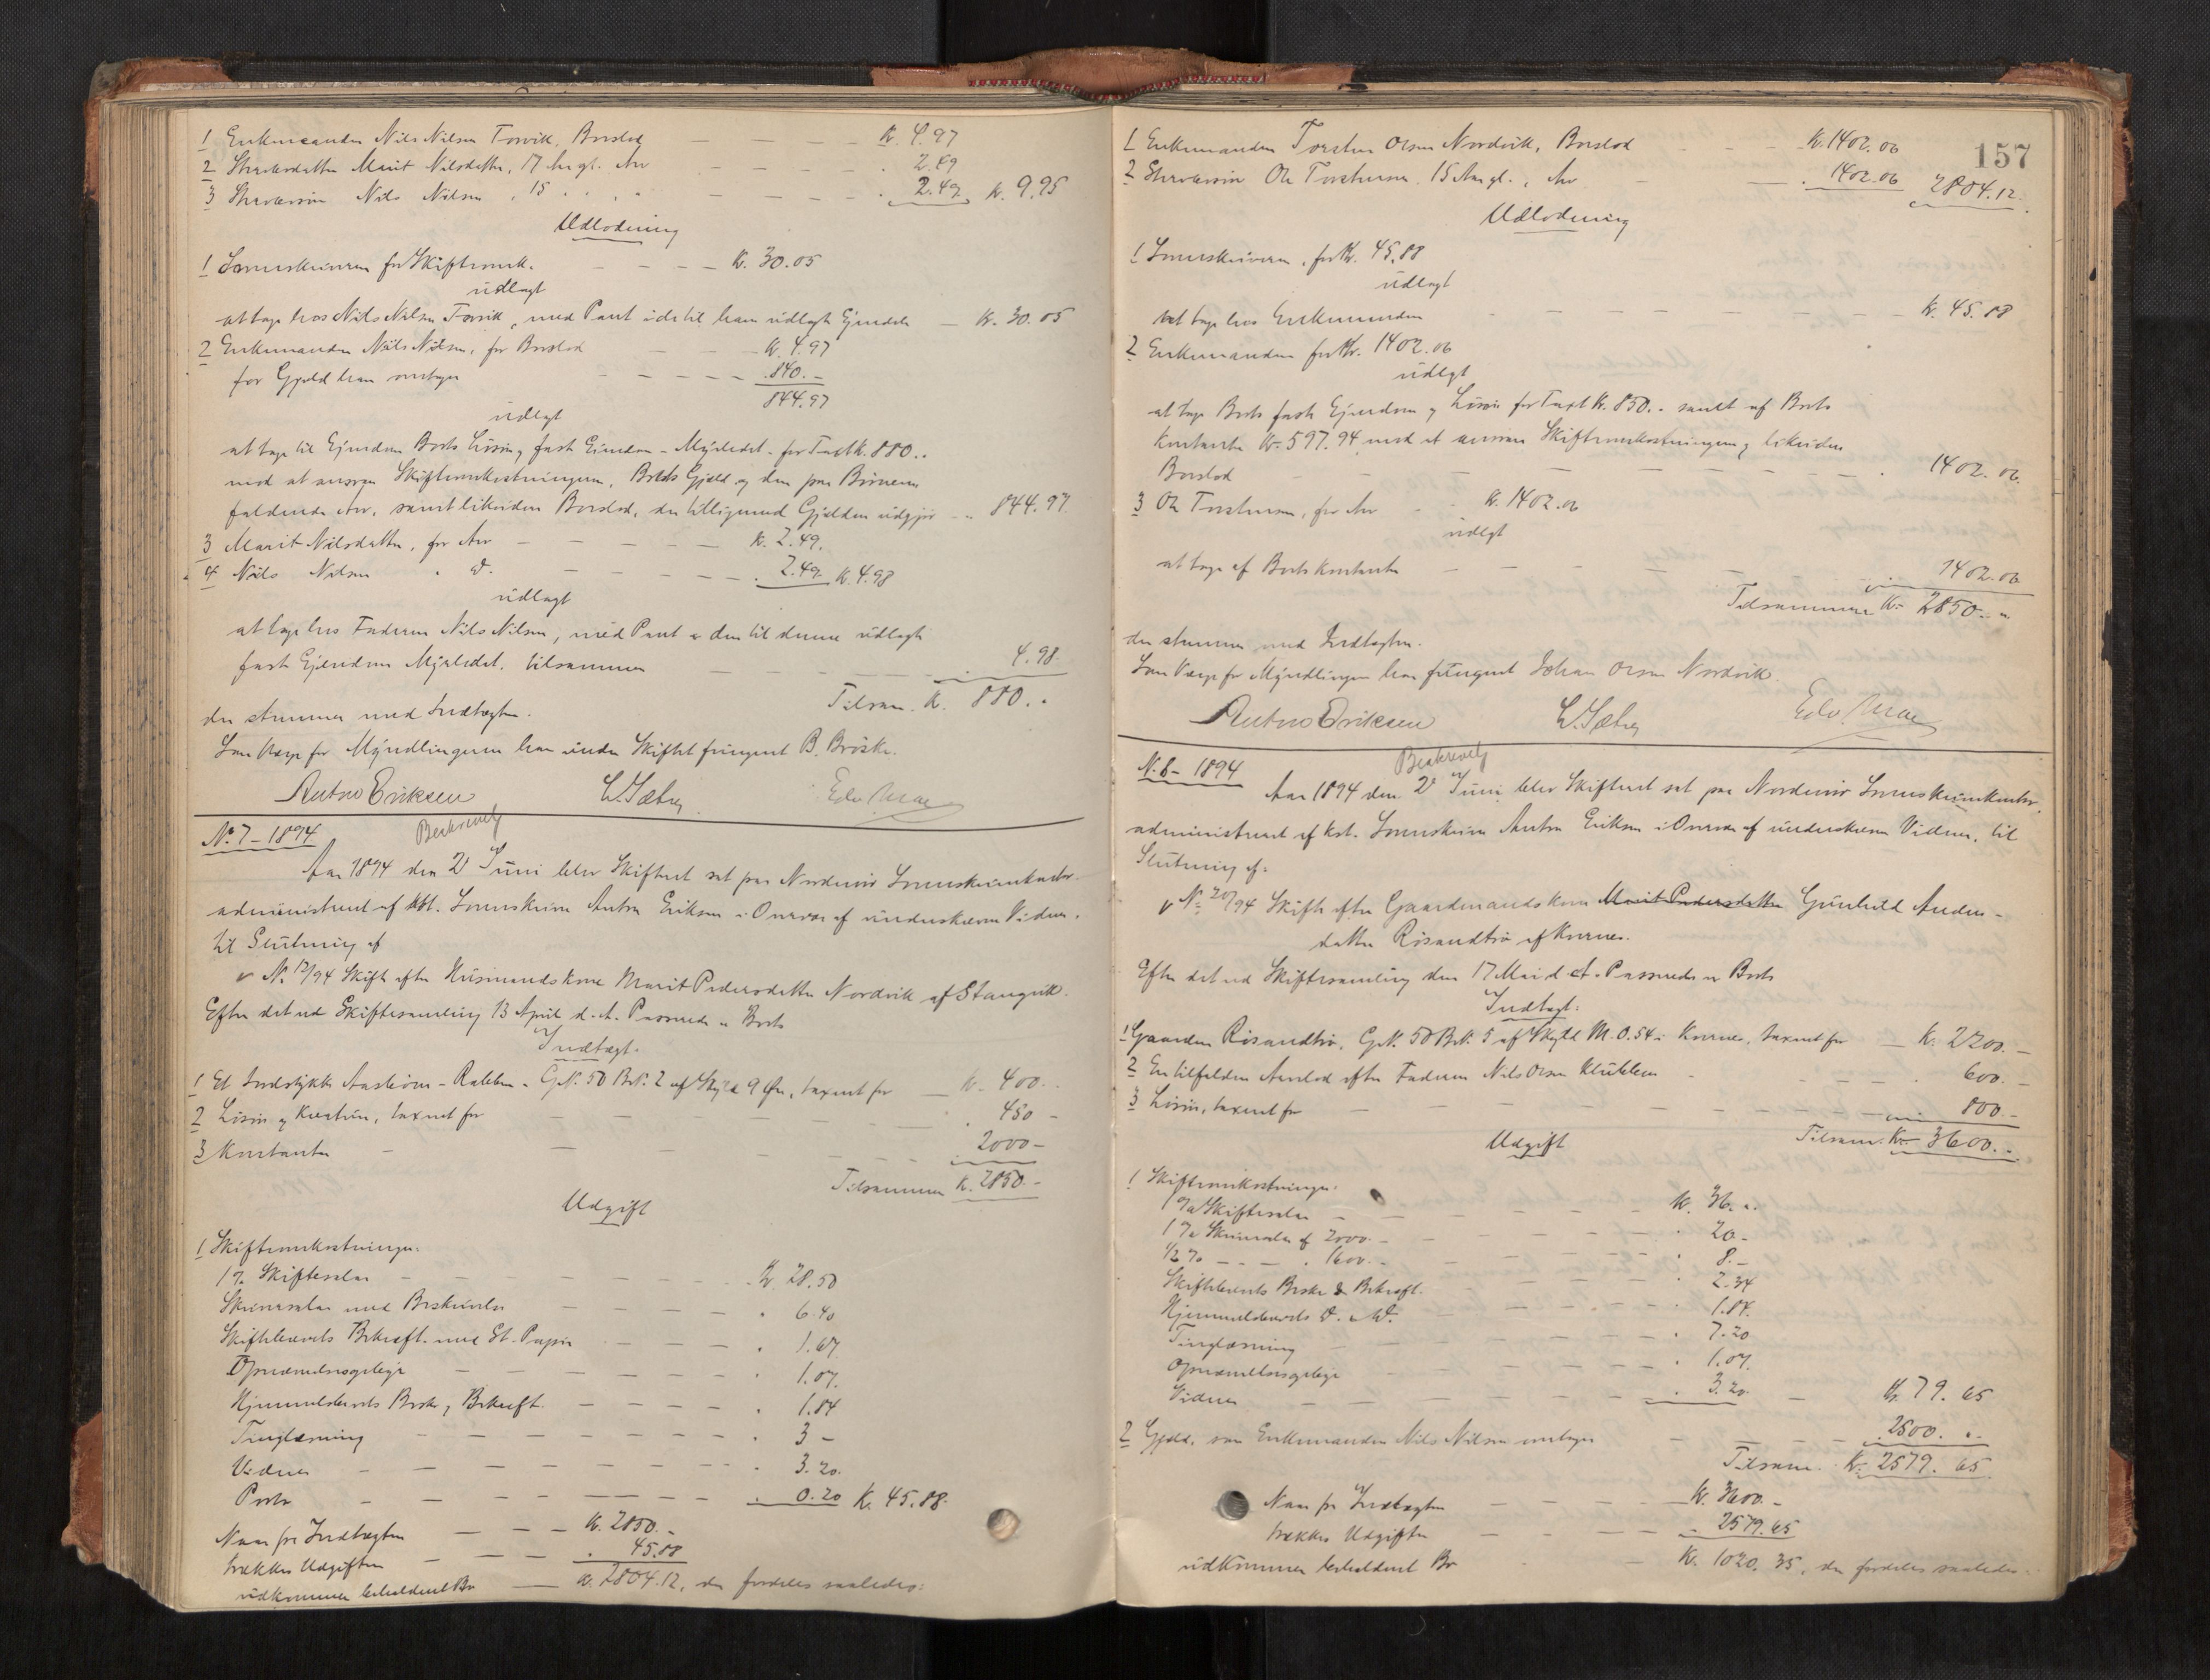 1 Enkemanden Nils Nilsen Torvik, Boeslod — — — — K. 4.97
2 Stervbodatter Marit Nilsdatter, 17 Aar gl. Arv — — — — . 2.49
3 Stervbosøn Nils Nilsen, 15 " " " — — — — . 2.49 K. 9.95
Udlodning
1 Sorenskriveren for Skifteomk. — — — — K. 30.05
udlagt
at tage hos Nils Nilsen Torvik, med Pant i de til ham udlagte Eiendele — K. 30.05
2 Enkemanden Nils Nilsen, for Boeslod — — K. 4.97
for Gjæld han overtager — — — — — . 840.-
844.97
udlagt
at tage til Eiendom Boets Løsøre, fast Eiendom - Myrledet - for Taxt K. 880..
mod at ansvare Skifteomkostningerne, Boets Gjæld og den paa Børnene
faldende Arv, samt likvidere Boeslod, der tilligemed Gjælden udgjør — " 844.97.
3 Marit Nilsdatter, for Arv — — — — — K. 2.49.
4 Nils Nilsen " d. — — — — — . 2.49 K. 4.98
udlagt
at tage hos Faderen Nils Nilsen, med Pant i den til denne udlagte
faste Eiendom Myrledet, tilsammen — — — — 4.98.
Tilsam. K. 880..
der stemmer med Indtægten.
Som Værge for Myndlingerne har under Skiftet fungeret B. Brøske.
Anton Eriksen L. Sæter Edv. Moe
No. 7 - 1894 Beskrevet
Aar 1894 den 2 Juni blev Skifteret sat paa Nordmør Sorenskriverkontor
administreret af kst. Sorenskriver Anton Eriksen i Overvær af underskrevne Vidner,
til Slutning af
v No. 12/94 Skifte efter Husmandskone Marit Pedersdatter Nordvik af Stangvik.
Efter det ved Skiftesamling 13 April d. A. Passerede er Boets
Indtægt.
1 Et Jordstykke Aashjem - Rabben - G.N. 50 B.N. 2 af Skyld 9 Øre, taxeret for — K. 400..
2 Løsøre og Kreaturer, taxeret for — — — . 450 -
3 Kontanter — — — — . 2000 -
Tilsammen K. 2850.-
Udgift
1 Skifteomkostninger.
1 % Skiftesalær — — — — K. 28.50
Skriversalær med Beskrivelse — — — — . 6.40
Skiftebrevets Bekræft. med St. Papir — — — — . 1.67
Opnævnelsesgebyr — — — — . 1.07.
Hjemmelsbrevets Beskr. og Bekræft. — — — — . 1.84
Tinglæsning — — — — . 3 -
Vidner — — — — . 3.20.
Porto — — — — . 0.20 K. 45.88.
Naar fra Indtægten — — — K. 2850.-
trækkes Udgiften — — — . 45.88
udkommer beholdent Bo — K. 2804.12, der fordeles saaledes:
157
1 Enkemanden Torsten Olsen Nordvik, Boeslod — — — K. 1402.06
2 Stervbosøn Ole Torstensen, 15 Aar gl., Arv — — . 1402.06 2804.12.
Udlodning
1 Sorenskriveren, for K. 45.88
udlagt
at tage hos Enkemanden — — — — — K. 45.88
2 Enkemanden for K. 1402.06
udlagt
at tage Boets faste Eiendom og Løsøre for Taxt K. 850.- samt af Boets
Kontanter K. 597.94 mod at ansvare Skifteomkostningerne og likvidere
Boeslod — — — — — . 1402.06.
3 Ole Torstensen, for Arv — K. 1402.06
udlagt
at tage af Boets Kontanter — — — — 1402.06
Tilsammen K. 2850..
der stemmer med Indtægten.
Som Værge for Myndlingen har fungeret Johan Olsen Nordvik.
Anton Eriksen L. Sæter Edv. Moe
N. 8 - 1894 Beskrevet
Aar 1894 den 2 Juni blev Skifteret sat paa Nordmør Sorenskriverkontor,
administreret af kst. Sorenskriver Anton Eriksen i Overvær af underskrevne Vidner, til
Slutning af:
v No. 20/94 Skifte efter Gaardmandskone Marit Pedersdatter Gunhild Anders-
datter Risandtrø af Kvernes.
Efter det ved Skiftesamling den 17 Mai d. A. Passerede er Boets
Indtægt:
1 Gaarden Risandtrø, G.N. 50 B.N. 5 af Skyld M. 0.54 i Kvernes, taxeret for — K. 2200.-
2 En tilfalden Arvelod efter Faderen Nils Olsen — . 600.-
3 Løsøre, taxeret for — — — — — . 800.-
Tilsam. K. 3600.-
Udgift
1 Skifteomkostninger.
1 % Skiftesalær — — — — K. 36..
1 % Skriversalær af 2000.- — — — . 20.-
1/2 % — — . 1600.- — — — . 8.-
Skiftebrevets Beskr. & Bekræft. — — — . 2.34
Hjemmelsbrevets d. & d. — — — . 1.84.
Tinglæsning — — — — . 7.20
Opnævnelsesgebyr — — — . 1.07.
Vidner — — — — . 3.20. — K. 79.65
2 Gjæld, som Enkemanden Nils Nilsen overtager — — — . 2500..
Tilsam. K. 2579.65
Naar fra Indtægten — — — K. 3600.-
trækkes Udgiften — — — . 2579.65
udkommer beholdent Bo — K. 1020.35, der fordeles saaledes: